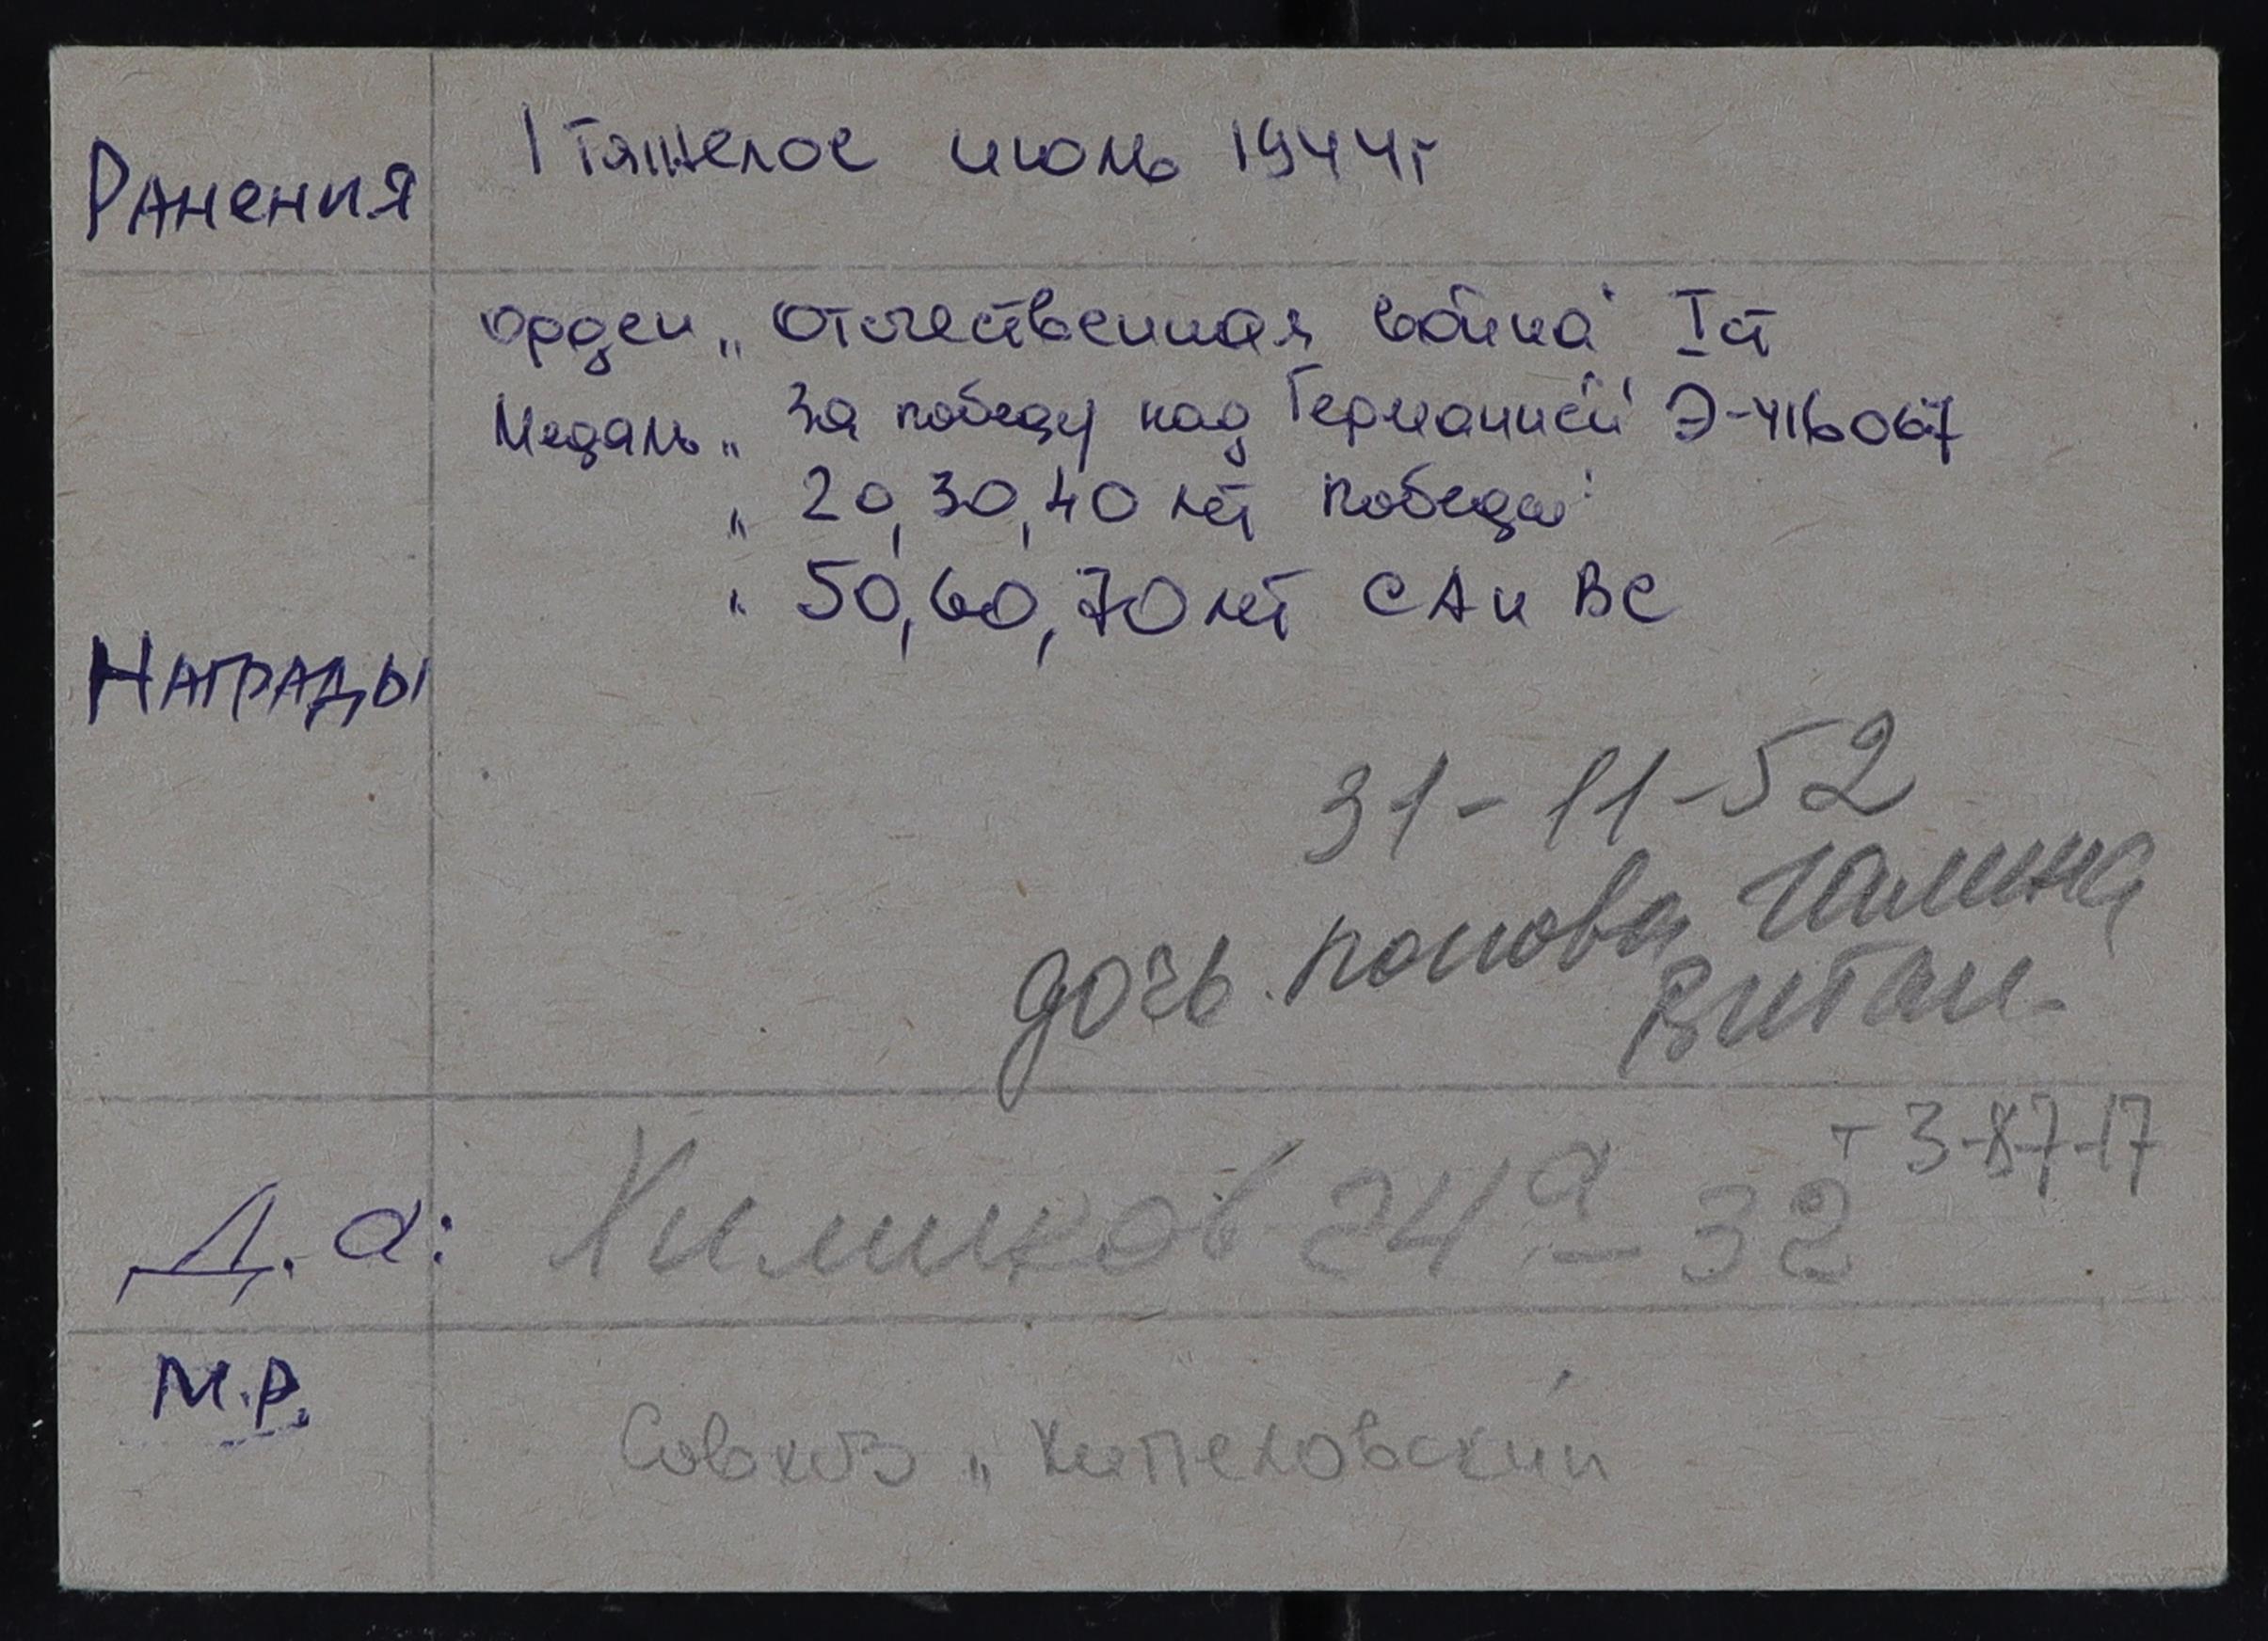 Ранения
1 тяжелое июль 1944г
Награды
орден „Отечественная война" I ст
Медаль „За победу над Германией" Э-416067
„ 20, 30, 40 лет победы"
„ 50, 60, 70 лет СА и ВС
31-11-52
дочь. Попова Галина
Витал.
Д.а:
Химиков 24а - 32
т 3-87-17
М.Р.
Совхоз „Кипеловский